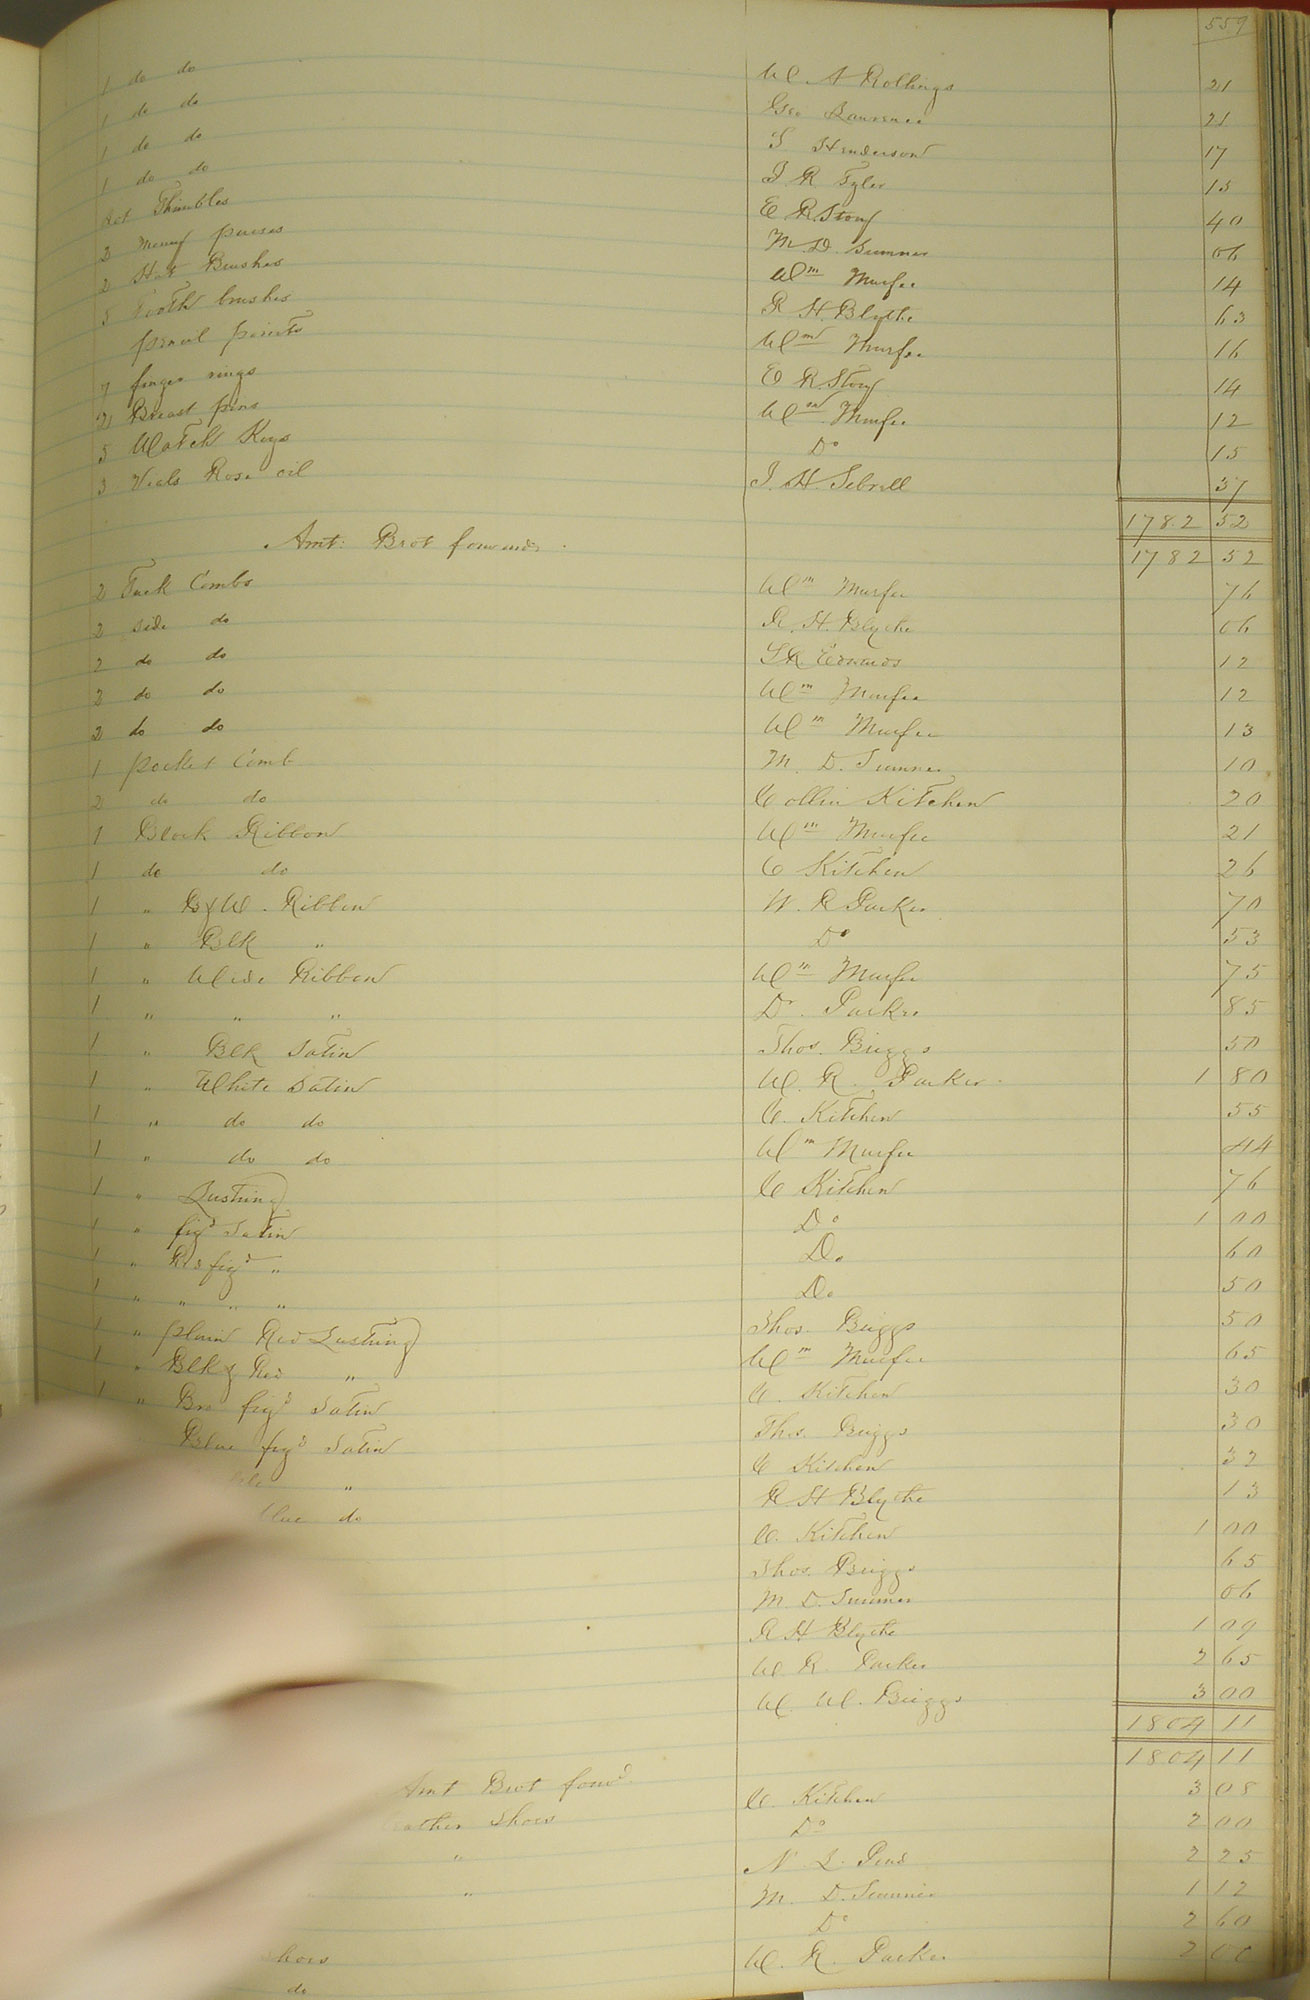 559
1 do do W A Rollings 21
1 do do Geo Lawrence 21
1 do do S Henderson 17
1 do do J R Tyler 15
Lot Thimbles E R. Story 40
3 Money purses M. D. Sumner 06
2 Hat Brushes Wm Murfee 14
5 Tooth brushes R H. Blythe 63
pencil points Wm Murfee 16
7 finger rings E R. Story 14
2 Breast pins Wm Murfee 12
5 Watch Keys Do 15
3 Vials Rose oil J. H. Sebrell 37
1782 52
Amt: Brot forwards 1782 52
2 Tuck Combs Wm Murfee 76
2 side do R. H. Blythe 06
2 do do S R. Edwards 12
2 do do Wm Murfee 12
2 do do Wm Murfee 13
1 pocket Comb M. D. Sumner 10
2 do do Collin Kitchen 20
1 Block Ribbon Wm Murfee 21
1 do do C Kitchen 26
1 " B & W. Ribbon W. R Parker 70
1 " Blk " Do 53
1 " Wide Ribbon Wm Murfee 75
1 " " " Dr. Parker 85
1 " Blk Satin Thos. Briggs 50
1 " White Satin W. R. Parker 1 80
1 " do do C. Kitchen 55
1 " do do Wm Murfee 44
1 " Lustring C Kitchen 76
1 " figd Satin Do 1 00
1 " Red figd " Do 60
1 " " " " Do 50
1 " plain Red Lustring Thos. Briggs 50
1 " Blk & Red " Wm Murfee 65
1 " Bro figd Satin C. Kitchen 30
Blue figd Satin Thos. Briggs 30
" C Kitchen 32
blue do R H Blythe 13
C. Kitchen 1 00
Thos. Briggs 65
M. D. Sumner 06
R H Blythe 1 09
W. R. Parker 2 65
W. W. Briggs 3 00
1804 11
Amt Brot forwd 1804 11
eather Shoes C. Kitchen 3 08
" Do 2 00
" " N. L. 2 25
M. D. Sumner 1 12
Do 2 60
hoes W. R. Parker 2 00
do